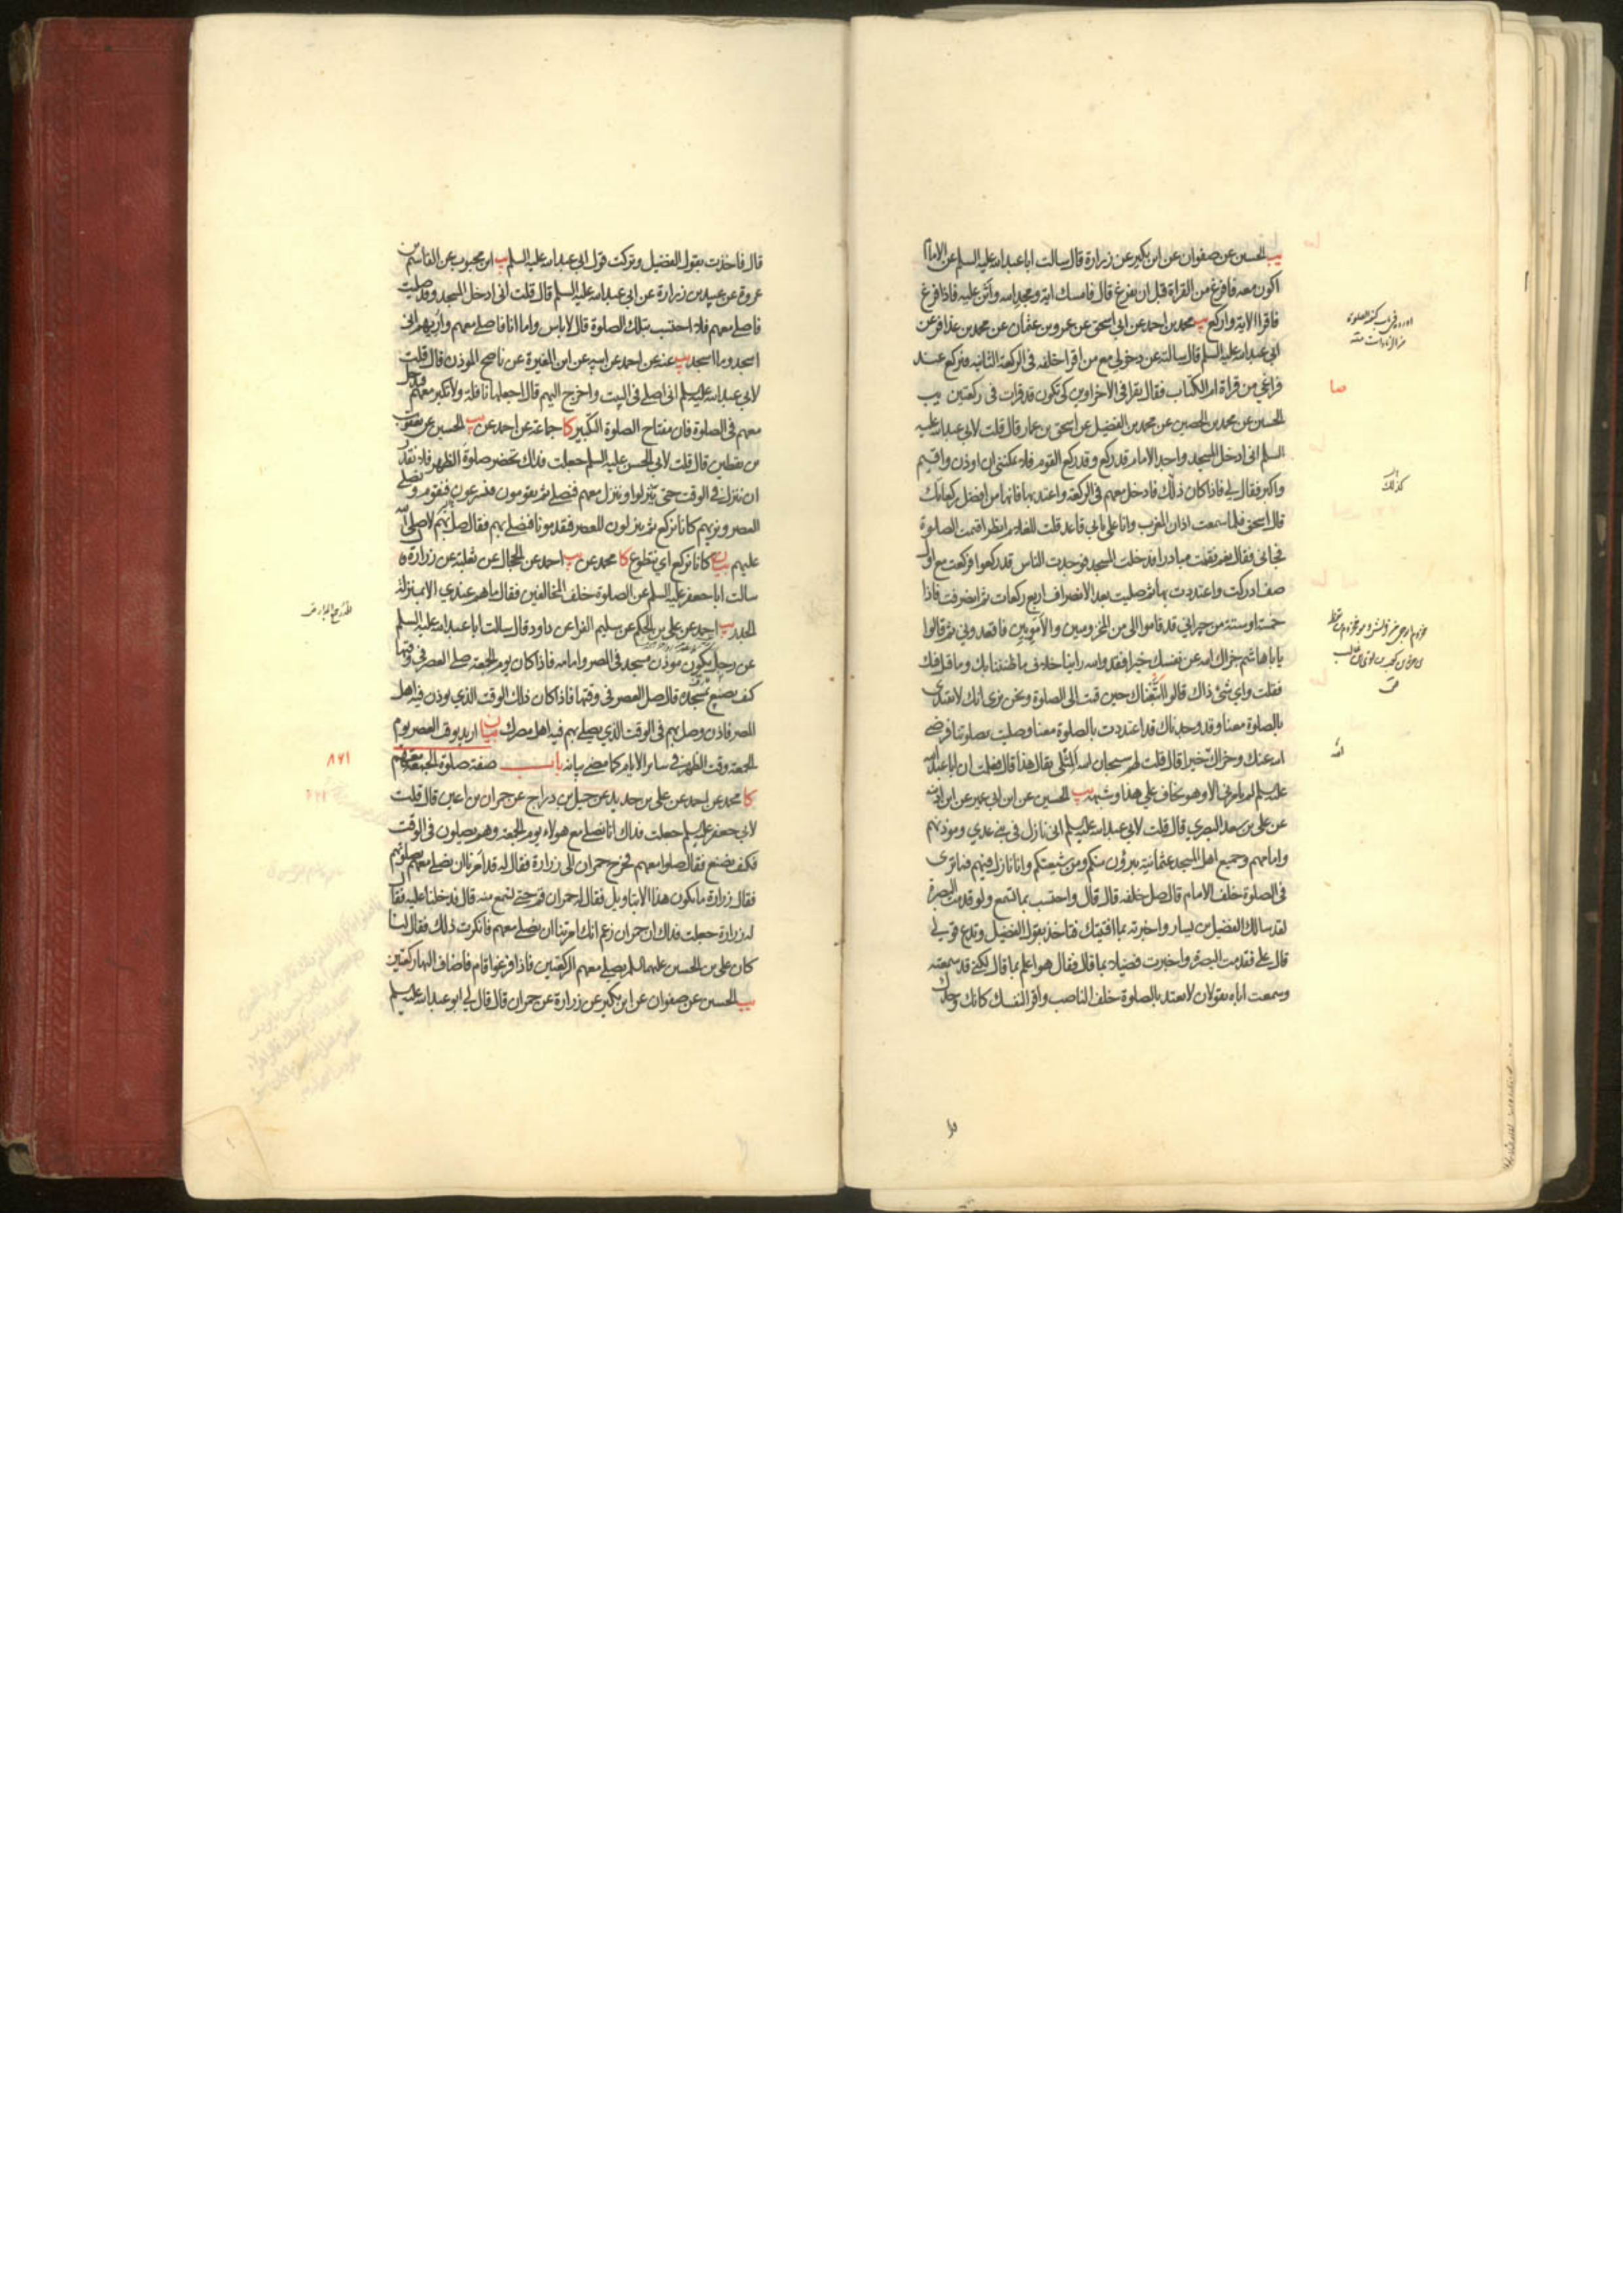 يب الحسين عن صفوان عن ابن بكير عن زرارة قال سالت ابا عبدالله عليه السلم عن الامام
اكون معه فافرغ من القراة قبل ان يفرغ قال فامسك اية ومجد الله واثن عليه فاذا فرغ
فاقرا الاية واركع يب محمد بن احمد عن ابي اسحق عن عمرو بن عثمان عن محمد بن عذافر عن
ابي عبدالله عليه السلم قال سالته عن دخولي مع من اقرا خلفه في الركعة الثانيه فيركع عند
فراغي من قراة ام الكتاب فقال يقرا في الاخراوين كي تكون قد قرات في ركعتين يب
الحسين عن محمد بن الحصين عن محمد بن الفضيل عن اسحق بن عمار قال قلت لابي عبدالله عليه
السلم اني ادخل المسجد واجد الامام قد ركع وقد ركع القوم فلا يمكنني ان اوذن واقيم
واكبر فقال لي فاذا كان ذلك فادخل معهم في الركعة واعتد بها فانها من افضل ركعاتك
قال اسحق فلما سمعت اذان المغرب وانا على بابي قاعد قلت للغلام انظر اقيمت الصلوة
فجاني فقال نعم فقمت مبادرا فدخلت المسجد فوجدت الناس قد ركعوا فركعت مع اول
صف ادركت واعتددت بها ثم صليت بعد الانصراف اربع ركعات ثم انصرفت فاذا
خمسة او ستة من جيراني قد قاموا الي من المخزوميين والامويين فاقعدوني ثم قالوا
يا با هاشم جزاك الله عن نفسك خيرا فقد والله راينا خلاف ما ظننا بك وما قيل فيك
فقلت واي شئ ذاك قالوا اتبعناك حين قمت الى الصلوة ونحن نرى انك لا تقتدي
بالصلوة معنا وقد وجدناك قد اعتددت بالصلوة معنا وصليت بصلوتنا فرضي
الله عنك وجزاك خيرا قال قلت لهم سبحان الله المثلي يقال هذا قال فعلمت ان ابا عبدالله
عليه السلم لم يامرني الا وهو يخاف علي هذا وشبهه يب الحسين عن ابن ابي عمير عن ابن اذينه
عن علي بن سعد البصري قال قلت لابي عبدالله عليه السلم اني نازل في بني عدي وموذنهم
وامامهم وجميع اهل المسجد عثمانية يبرؤن منكم ومن شيعتكم وانا نازل فيهم فما ترى
في الصلوة خلف الامام قال صل خلفه قال قال واحتسب بما تسمع ولو قدمت البصرة
لقد سالك الفضيل بن يسار واخبرته بما افتيتك فتاخذ بقول الفضيل وتدع قولي
قال علي فقدمت البصرة واخبرت فضيلا بما قال فقال هو اعلم بما قال لكني قد سمعته
وسمعت اباه يقولان لا يعتد بالصلوة خلف الناصب واقرا لنفسك كانك وحدك
صا
كذلك
قال فاخذت بقول الفضيل وتركت قول ابي عبدالله عليه السلم يب ابن محبوب عن القاسم بن
عروة عن عبيد بن زرارة عن ابي عبدالله عليه السلم قال قلت اني ادخل المسجد وقد صليت
فاصلي معهم فلا احتسب بتلك الصلوة قال لا باس واما انا فاصلي معهم واريهم اني
اسجد وما اسجد يب عنه عن احمد عن ابيه عن ابن المغيرة عن ناصح الموذن قال قلت
لابي عبدالله عليه السلم اني اصلي في البيت واخرج اليهم قال اجعلها نافلة ولا تكبر معهم فتدخل
معهم في الصلوة فان مفتاح الصلوة التكبير كا جماعة عن احمد عن يب الحسين عن يعقوب
بن يقطين قال قلت لابي الحسن عليه السلم جعلت فداك تحضر صلوة الظهر فلا نقدر
ان ننزل في الوقت حتى ينزلوا وننزل معهم فنصلي ثم يقومون فيسرعون فنقوم ونصلي
العصر ونريهم كانا نركع ثم ينزلون للعصر فيقدمونا فنصلي بهم فقال صل بهم لا صلى الله
عليهم بيان كانا نركع اي نتطوع كا محمد عن يب احمد عن الحجال عن ثعلبة عن زرارة
سالت ابا جعفر عليه السلم عن الصلوة خلف المخالفين فقال ما هم عندي الا بمنزلة
الجدر يب احمد عن علي بن الحكم عن سليم الفرا عن داود قال سالت ابا عبدالله عليه السلم
عن رجل يكون موذن مسجد في المصر وامامه فاذا كان يوم الجمعة صلى العصر في وقتها
كيف يصنع بمسجده قال صل العصر في وقتها فاذا كان ذلك الوقت الذي يوذن فيه اهل
المصر فاذن وصل بهم في الوقت الذي يصلي بهم فيه اهل مصرك بيان اريد بوقت العصر يوم
الجمعة وقت الظهر في ساير الايام كما مضى بيانه باب صفة صلوة الجمعة معهم
كا محمد عن احمد عن علي بن حديد عن جميل بن دراج عن حمران بن اعين قال قلت
لابي جعفر عليه السلم جعلت فداك انا نصلي مع هولاء يوم الجمعة وهم يصلون في الوقت
فكيف نصنع فقال صلوا معهم فخرج حمران الى زرارة فقال له قد امرنا ان نصلي معهم بصلوتهم
فقال زرارة ما يكون هذا الا بتاويل فقال له حمران قم حتى تسمع منه قال فدخلنا عليه فقال
له زرارة جعلت فداك ان حمران زعم انك امرتنا ان نصلي معهم فانكرت ذلك فقال لنا
كان علي بن الحسين عليهما السلم يصلي معهم الركعتين فاذا فرغوا قام فاضاف اليها ركعتين
يب الحسين عن صفوان عن ابن بكير عن زرارة عن حمران قال قال لي ابو عبدالله عليه السلم
۸۶۱